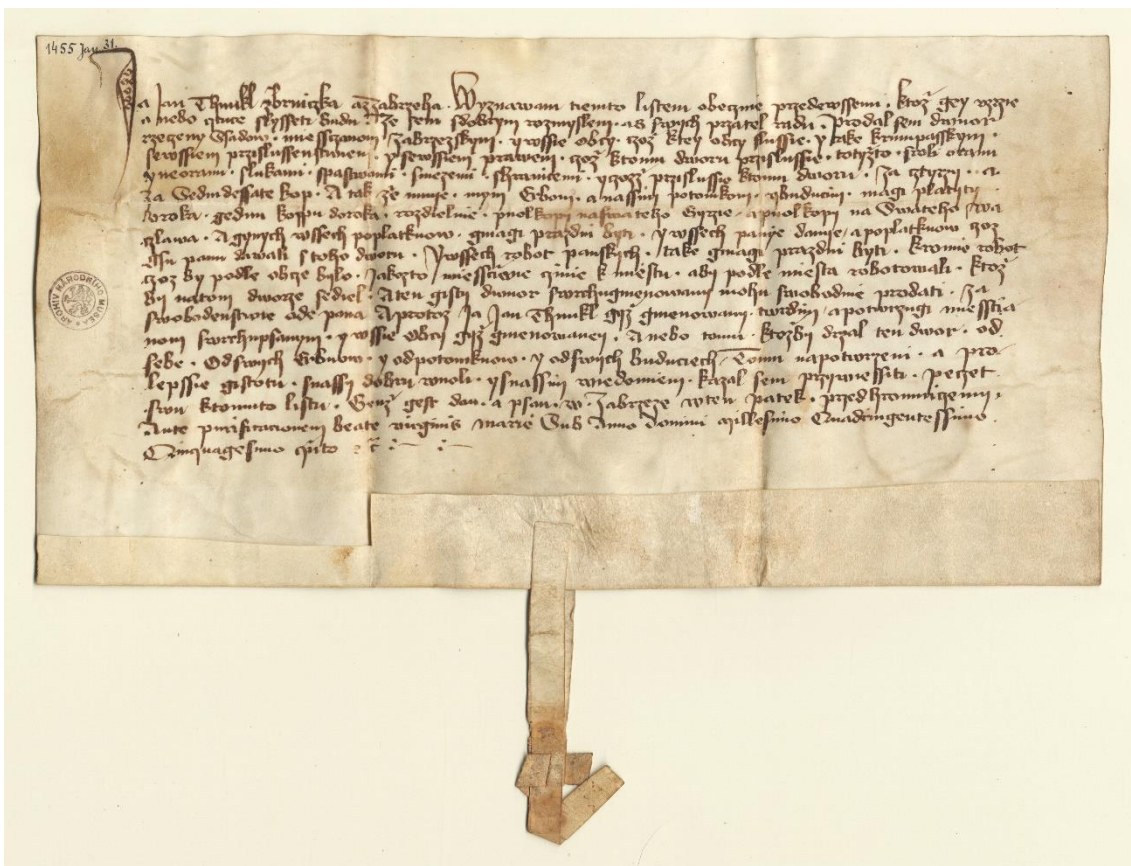 1455 Jan 31.
Ja Jan Thunkl zbrniczka azzabrzeha · Wyznawam tiemto listem obecznie przedewssemi · ktoz gey vzrzie
a nebo cztuce slysseti budu · ze sem sdobrym rozmyslem · a s swych przatel radu · Prodal sem dwuor
rzeczeny · miessczanom Zabrzezskym · y wssie obcy · czoz ktey obcy slussie · y take krumpasskym ·
sewssiem przislussenstwem · y sewssiem prawem · czoz ktomu dworu przislussie · totizto · s rolí orami
y neorami · slukami · spastwami · smezemi · shranicemi · y czoz przislussie ktomu dworu · Za cztyrzi · a
za Sedmdessate kop · A tak ze mnie · mym Erbom · a nassim potomkom · ybuducim · magi platyti
Vroka · gednu kopu doroka · rozdielnie · puolkopi naswateho Gyrzie · apuolkopi na Swateho Wa
czlawa · A gynych wssech poplatkuow · gmagi prazdni byti · y wssech panye danie · a poplatkuow czoz
gsu panu dawali s toho dworu · Y wssech robot panskych · take gmagi prazdni byti · kromie robot
czoz by podle obcze bylo · Jakozto · miessczene czinie k miestu · aby podle miesta robotowali · ktoz
by natom dworze sediel · A ten gisty dwuor swrchugmenowany mohu swobodnie prodati · za
swobodenstwie ode pana Aprotoz Ja Jan Thunkl giz gmenowany · twrdim · apotwrzugi miesscza
nom swrchupsanym · y wssie obcy giz gmenowaney · A nebo tomu · ktozby drzal ten dwor · od
sebe · Odswych Erbuow · y odpotomkuow · y odswych Buduciech · Tomu napotwrzeni · a pro
lepssie gistotu · snassy dobru wuoli · ysnassim wiedomiem · kazal sem przywiessiti · peczet
swu ktomuto listu · Genz gest dan · a psan · w · Zabrzeze wten patek · przedhromniczemi ·
Ante purificacionem beate virginis Marie Sub Anno domini Millesimo Quadringentessimo
Quinquagesimo qinto
ARCHIV NÁRODNÍHO MUSEA